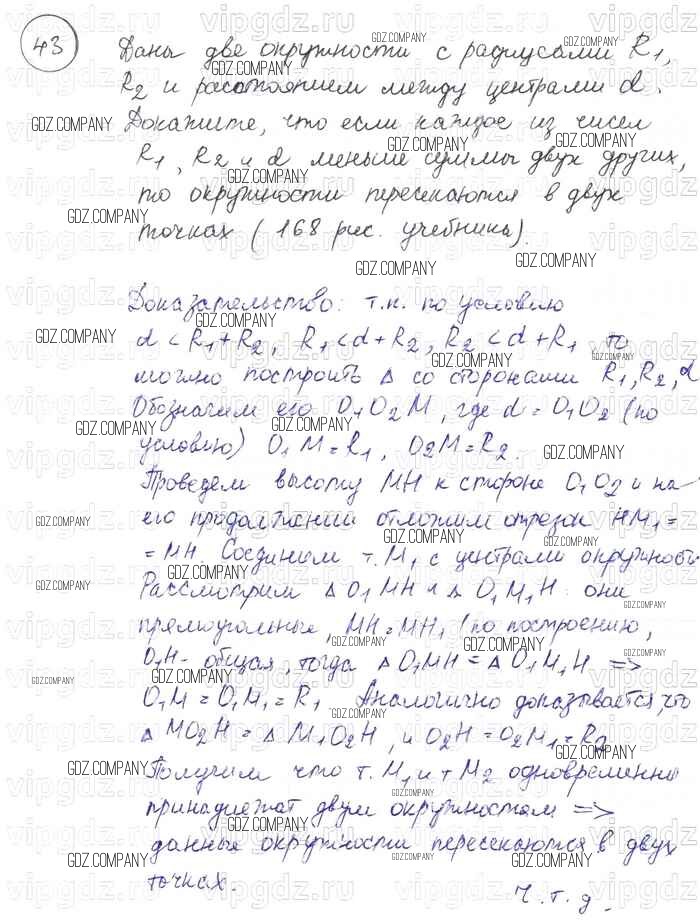 43
Даны две окружности с радиусами R1,
R2 и расстоянием между центрами d.
Докажите, что если каждое из чисел
R1, R2 и d меньше суммы двух других,
то окружности пересекаются в двух
точках (168 рис. учебника).
Доказательство: т.к. по условию
d < R1+R2, R1 < d+R2, R2 < d+R1 то
можно построить Δ со сторонами R1, R2, d
Обозначим его O1O2M, где d = O1O2 (по
условию) O1M = R1, O2M = R2.
Проведем высоту MH к стороне O1O2 и на
его продолжении отложим отрезок HM1 =
= MH. Соединим т. M1 с центрами окружность
Рассмотрим Δ O1MH и Δ O1M1H: они
прямоугольные, MH = MH1 (по построению,
O1H - общая, тогда Δ O1MH = Δ O1M1H =>
O1M = O1M1 = R1 Аналогично доказывается, что
Δ MO2H = Δ M1O2H, и O2H = O2M1 = R2
Получим что т. M1 и т M2 одновременно
принадлежат двум окружностям =>
данные окружности пересекаются в двух
точках.
Ч.т.д.
GDZ.COMPANY
vipgdz.ru